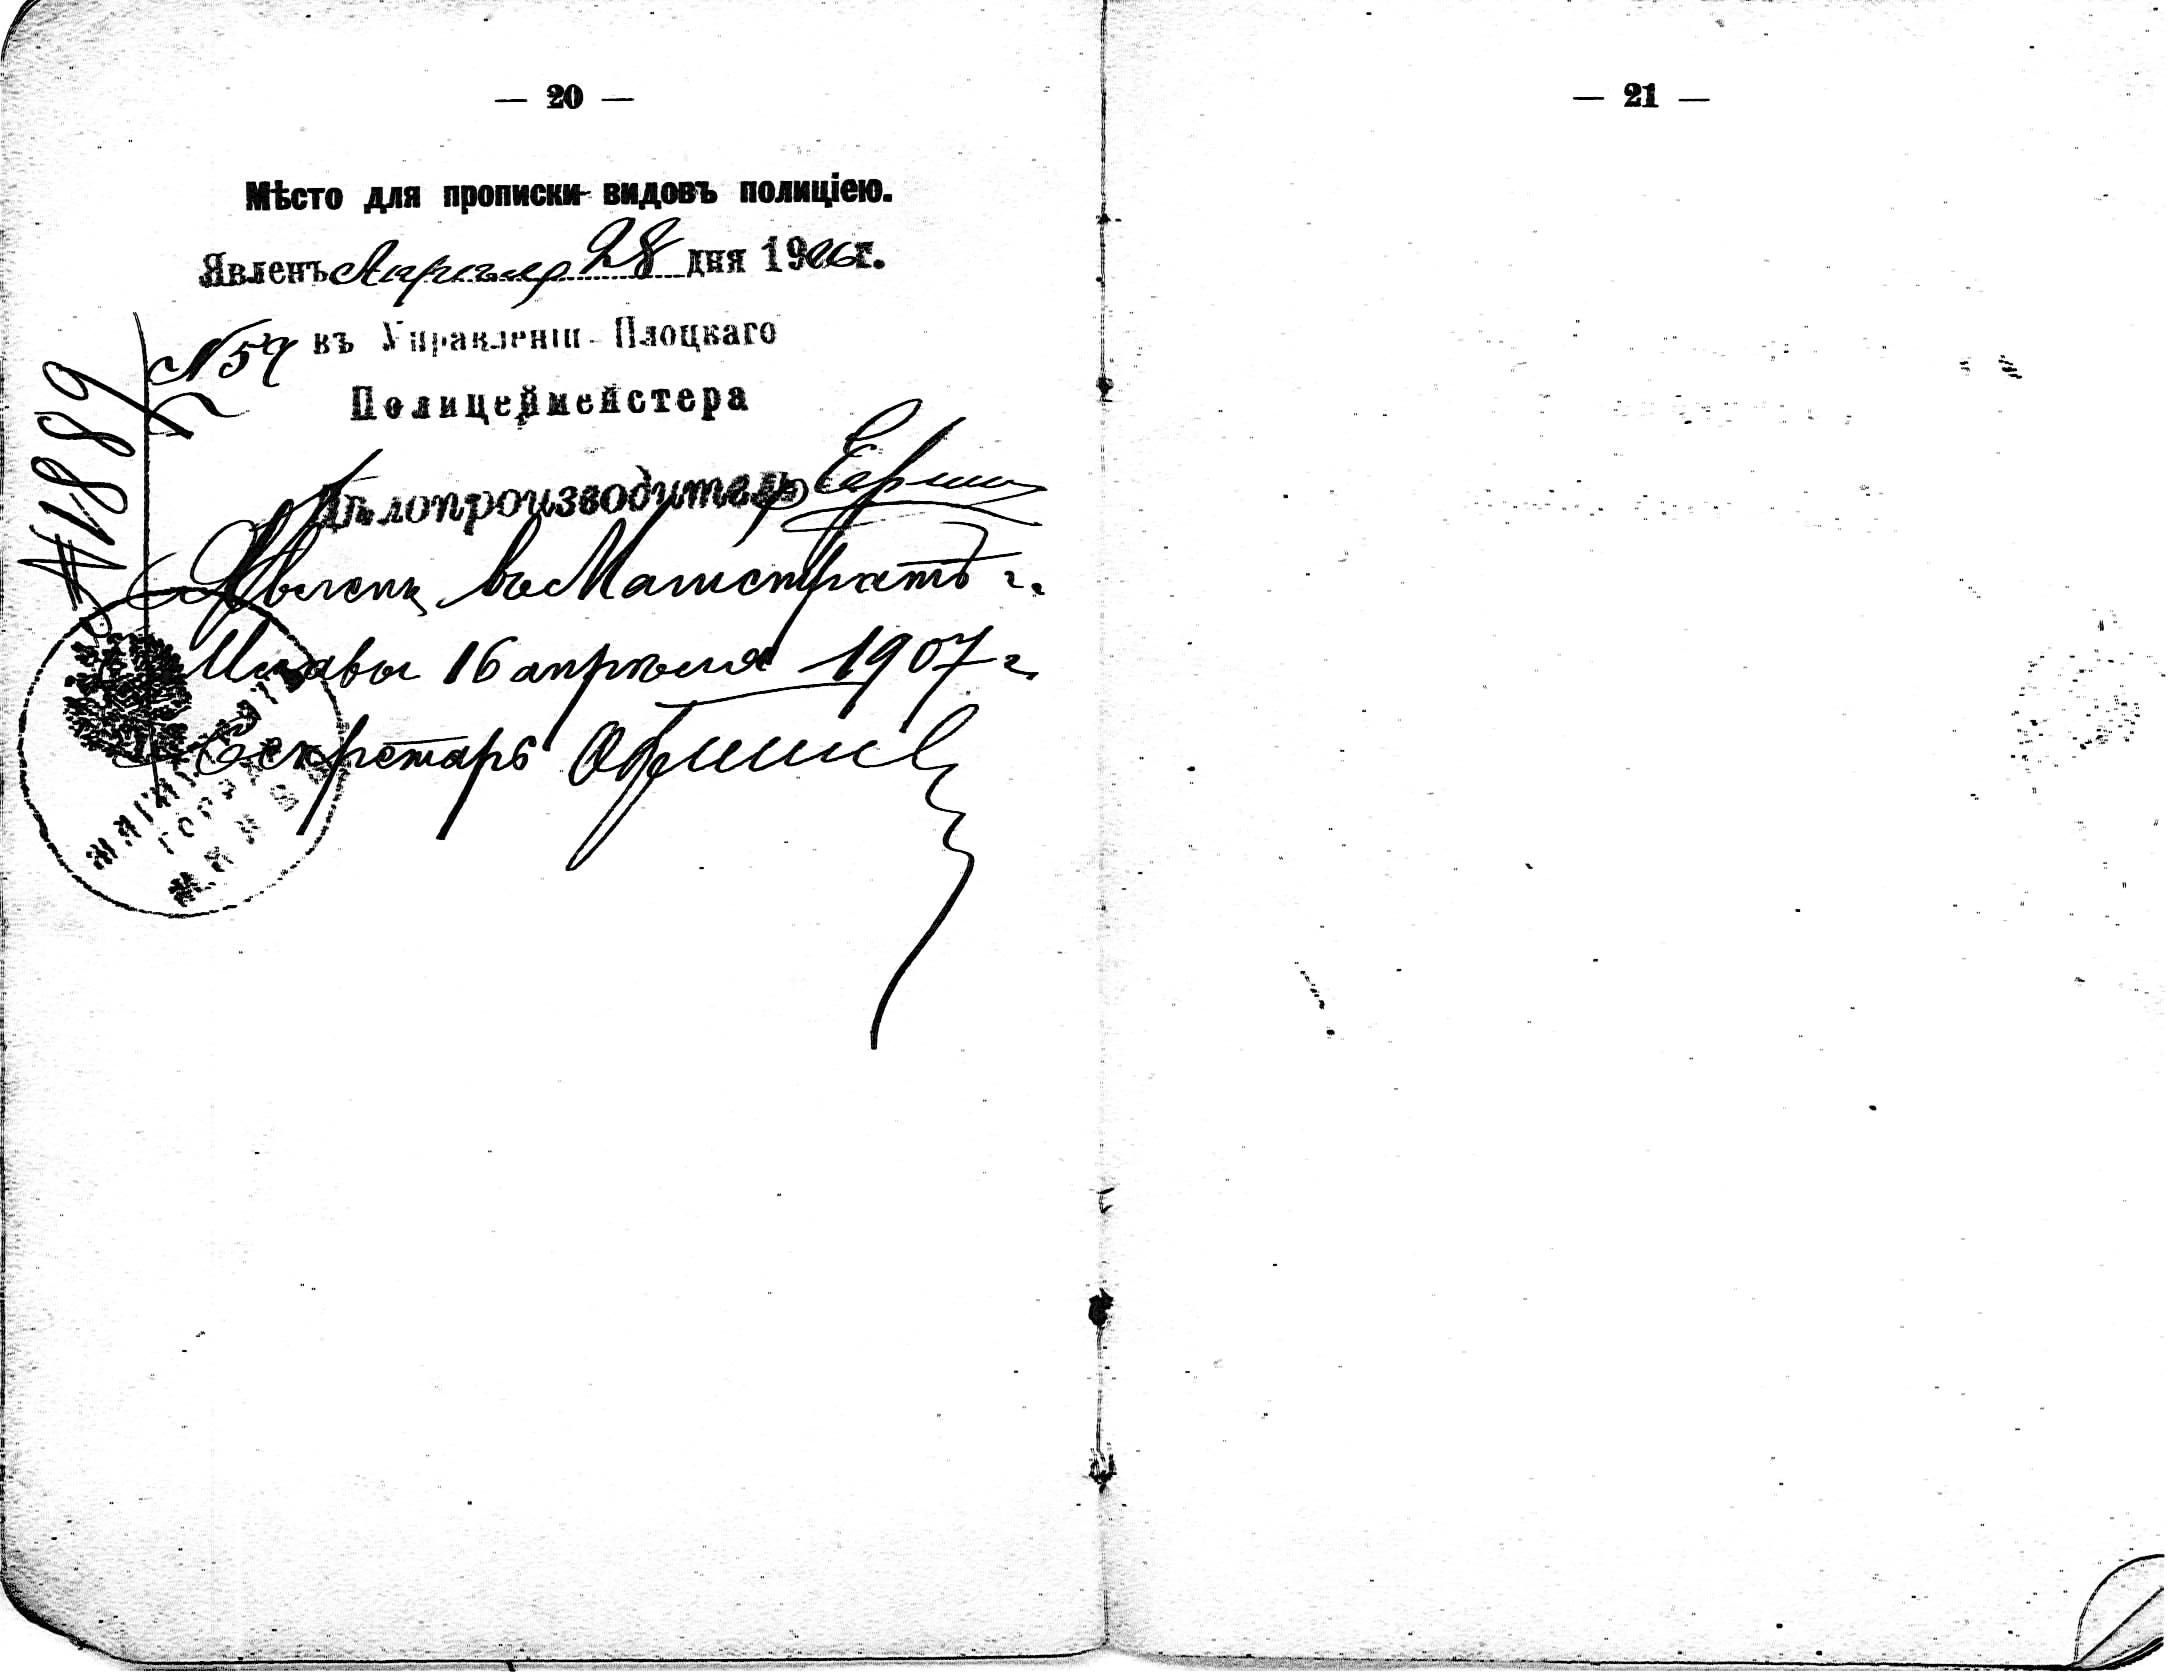 — 20 —
Мѣсто для прописки видовъ полиціею.
Явленъ Апрѣля 28 дня 1906 г.
N 59 въ Управленіи Плоцкаго
Полицеймейстера
Дѣлопроизводитель
N 1889
Явленъ въ Магистратѣ г.
Млавы 16 апрѣля 1907 г.
Секретарь
МАГИСТРАТЪ
ГОРОДА
МЛАВЫ
— 21 —